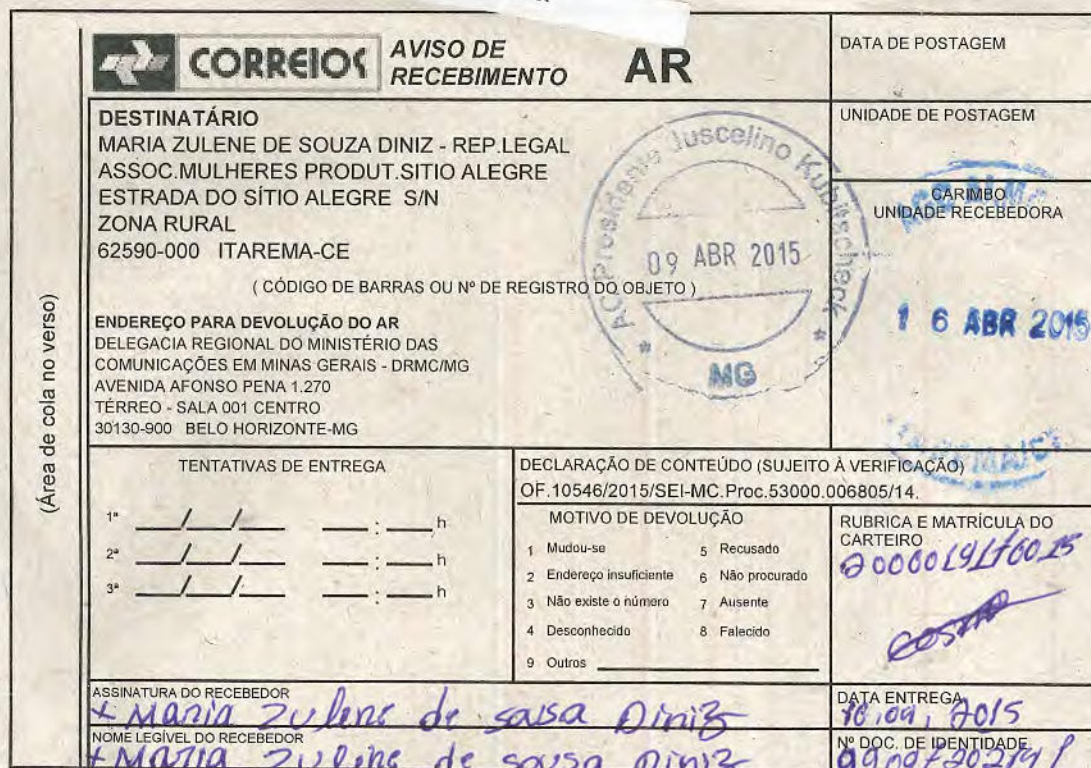 CORREIOS
AVISO DE
RECEBIMENTO
AR
DATA DE POSTAGEM
DESTINATÁRIO
MARIA ZULENE DE SOUZA DINIZ - REP.LEGAL
ASSOC.MULHERES PRODUT.SITIO ALEGRE
ESTRADA DO SÍTIO ALEGRE S/N
ZONA RURAL
62590-000 ITAREMA-CE
UNIDADE DE POSTAGEM
CARIMBO
UNIDADE RECEBEDORA
AC Presidente Juscelino Kubitscheck
09 ABR 2015
MG
16 ABR 2015
( CÓDIGO DE BARRAS OU Nº DE REGISTRO DO OBJETO )
ENDEREÇO PARA DEVOLUÇÃO DO AR
DELEGACIA REGIONAL DO MINISTÉRIO DAS
COMUNICAÇÕES EM MINAS GERAIS - DRMC/MG
AVENIDA AFONSO PENA 1.270
TÉRREO - SALA 001 CENTRO
30130-900 BELO HORIZONTE-MG
(Área de cola no verso)
TENTATIVAS DE ENTREGA
1ª ___/___/___ ___:___h
2ª ___/___/___ ___:___h
3ª ___/___/___ ___:___h
DECLARAÇÃO DE CONTEÚDO (SUJEITO À VERIFICAÇÃO)
OF.10546/2015/SEI-MC.Proc.53000.006805/14.
MOTIVO DE DEVOLUÇÃO
1 Mudou-se
2 Endereço insuficiente
3 Não existe o número
4 Desconhecido
5 Recusado
6 Não procurado
7 Ausente
8 Falecido
9 Outros
RUBRICA E MATRÍCULA DO
CARTEIRO
ASSINATURA DO RECEBEDOR
Maria Zulene de sousa Diniz
DATA ENTREGA
2015
NOME LEGÍVEL DO RECEBEDOR
Maria Zulene de sousa Diniz
Nº DOC. DE IDENTIDADE